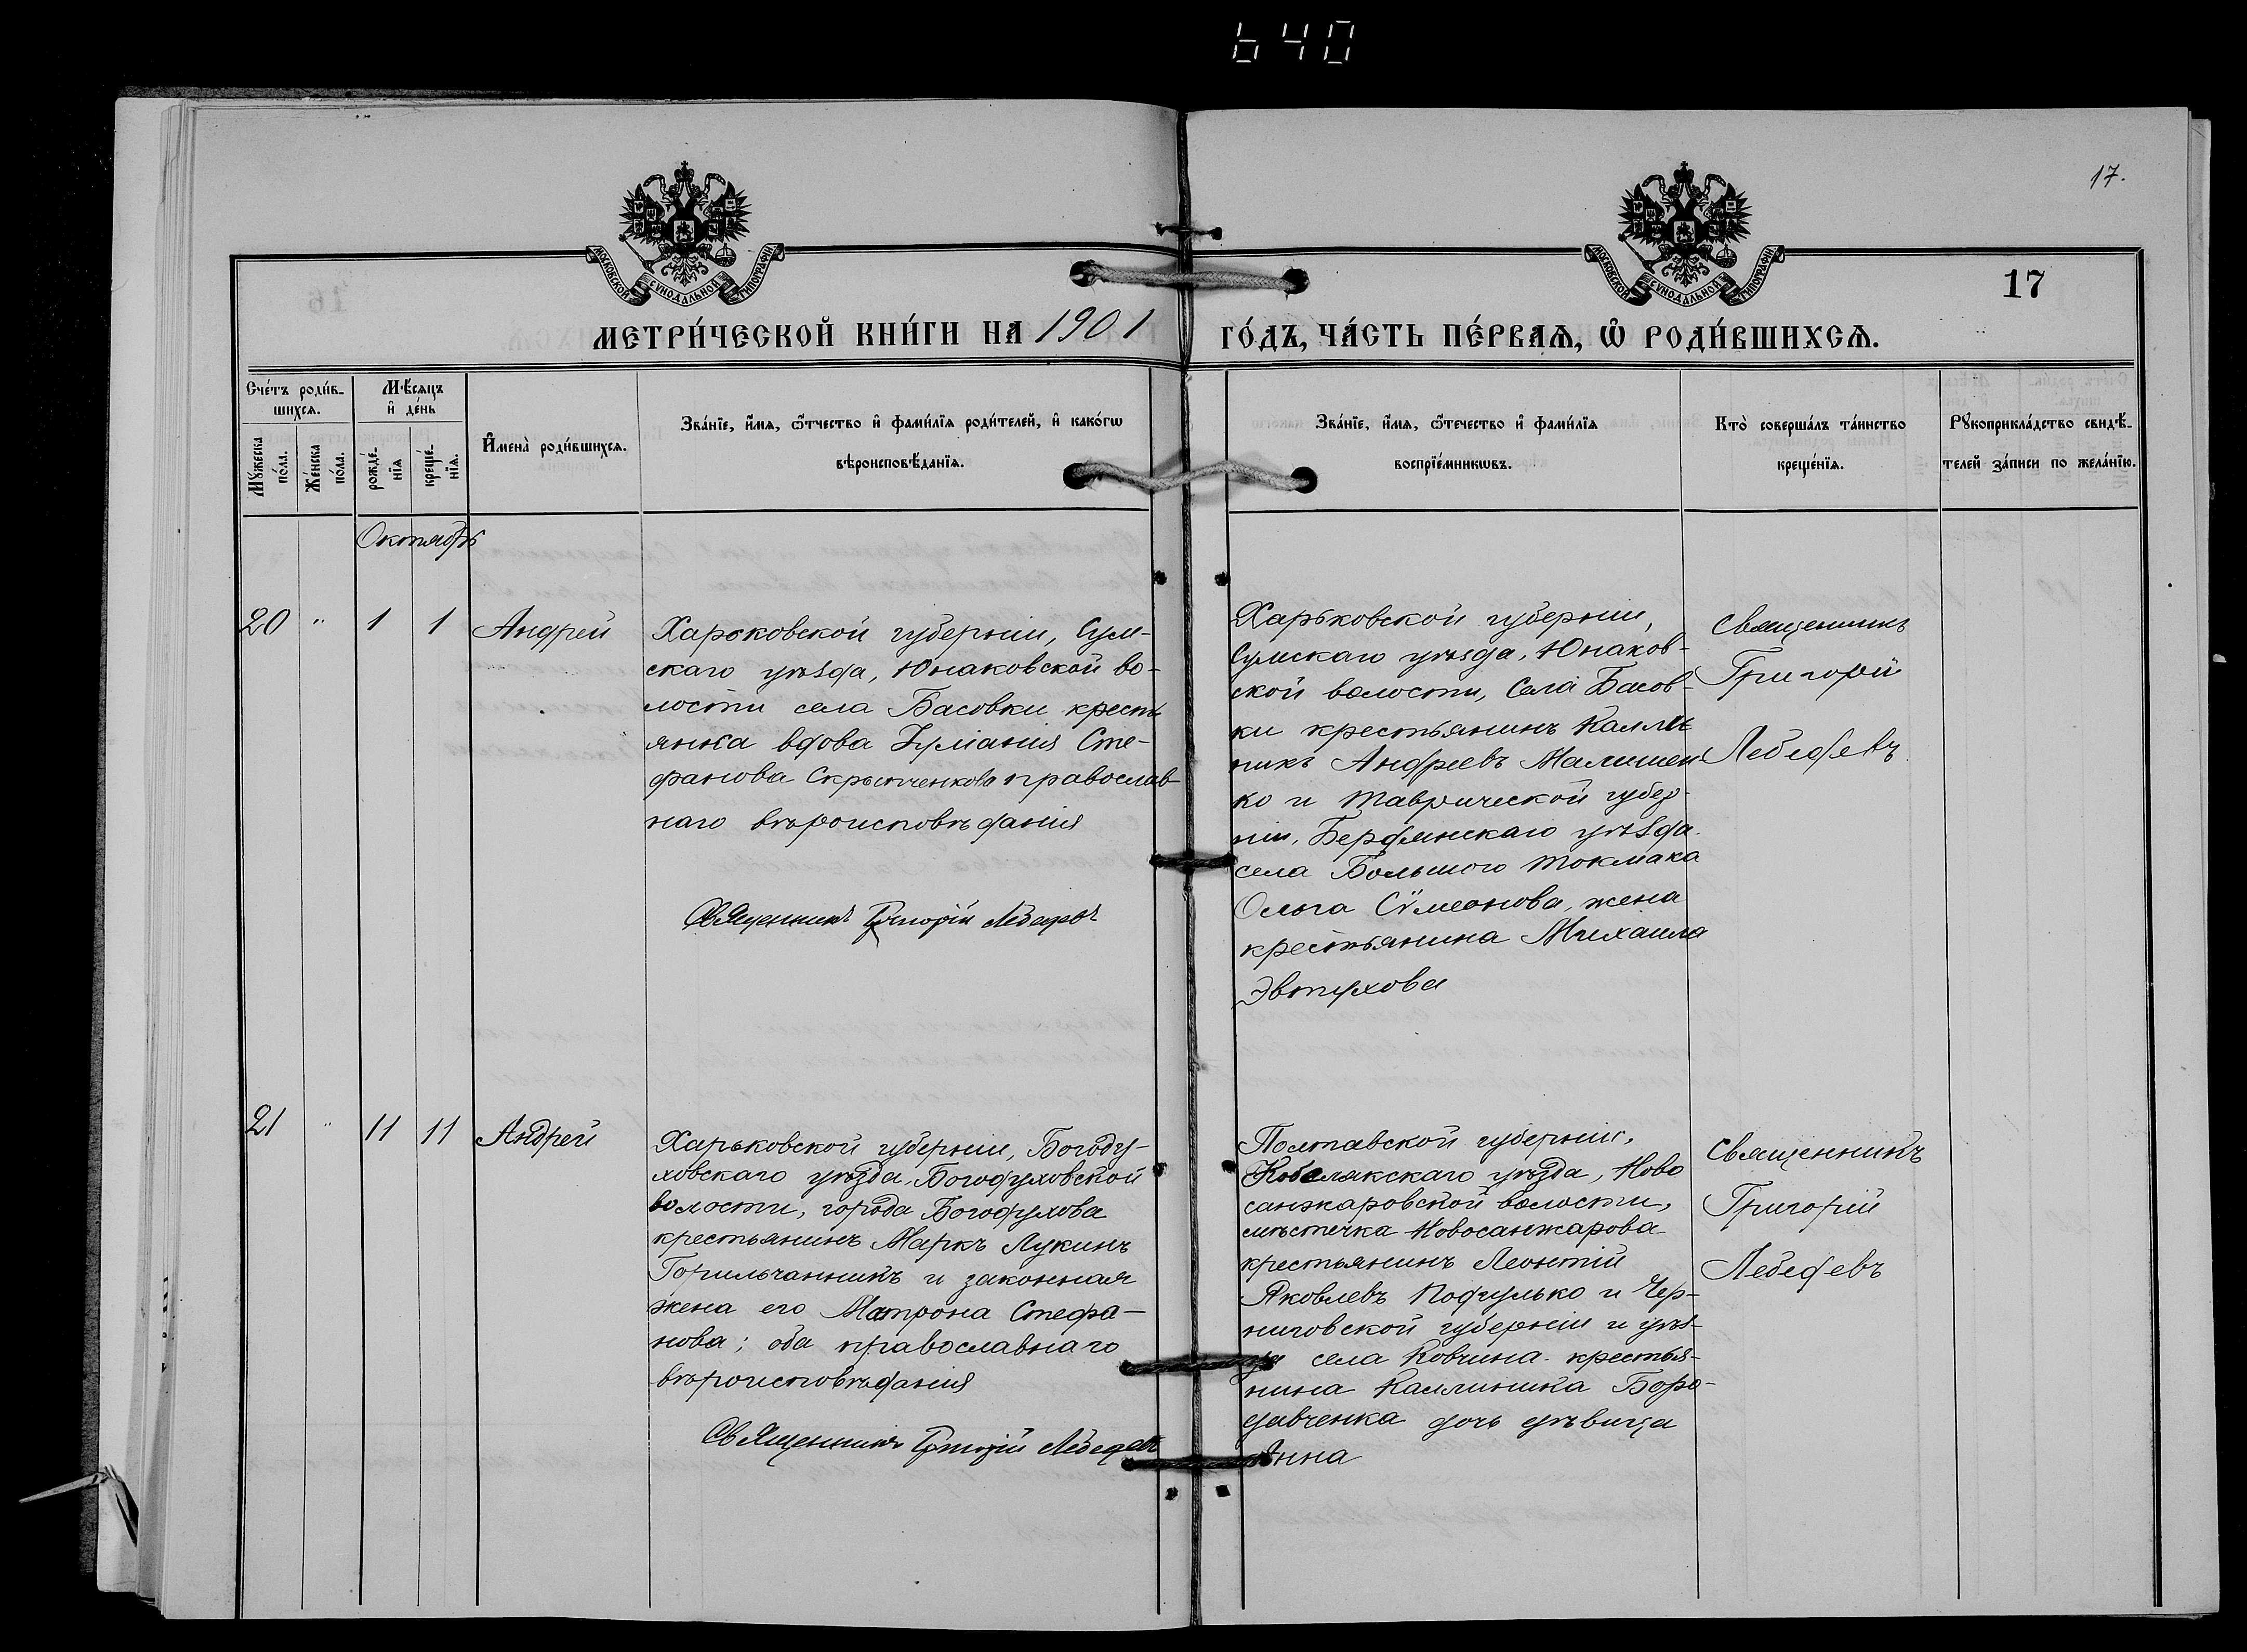 640
17.
МОСКОВСКОЙ СѴНОДАЛЬНОЙ ТИПОГРАФІИ
МОСКОВСКОЙ СѴНОДАЛЬНОЙ ТИПОГРАФІИ
17
МЕТРИ́ЧЕСКОЙ КНИ́ГИ НА 1901
ГО́ДЪ, ЧА́СТЬ ПЕ́РВАѦ, Ѡ҆ РОДИ́ВШИХСѦ.
Сче́тъ роди́в-
шихся.
Мѣ́сяцъ
и҆ де́нь
Мꙋ́жеска по́ла.
Же́нска по́ла.
рожде́-
нїя
креще́-
нїя.
И҆мена̀ роди́вшихся.
Зва́нїе, и҆́мя, ѻ҆́тчество и҆ фами́лїя роди́телей, и҆ како́гѡ
вѣроисповѣ́данїя.
Зва́нїе, и҆́мя, ѻ҆́течество и҆ фами́лїя
воспрїе́мникѡвъ.
Кто̀ соверша́лъ та́инство
креще́нїя.
Рꙋкоприкла́дство свидѣ́-
телей за́писи по жела́нїю.
Октябрь
20 " 1 1 Андрей
Харьковской губерніи, Сум-
скаго уѣзда, Юнаковской во-
лости села Басовки кресть
янка вдова Іуліанія Сте-
фанова Скрыпченкова православ-
наго вѣроисповѣданія
Священникъ Григорій Лебедевъ
Харьковской губерніи,
Сумскаго уѣзда, Юнаков-
ской волости, села Басов-
ки крестьянинъ Калли
никъ Андреевъ Малишен
ко и Таврической губер-
ніи, Бердянскаго уѣзда
села Большого Токмака
Ольга Сѵмеонова, жена
крестьянина Михаила
Эвтухова
Священникъ
Григорій
Лебедевъ
21 " 11 11 Андрей
Харьковской губерніи, Богоду-
ховскаго уѣзда, Богодуховской
волости, города Богодухова
крестьянинъ Маркъ Лукинъ
Горильчанникъ и законная
жена его Матрона Стефа-
нова; оба православнаго
вѣроисповѣданія
Священникъ Григорій Лебедевъ
Полтавской губерніи,
Кобелякскаго уѣзда, Ново
санжаровской волости,
мѣстечка Новосанжарова
крестьянинъ Леонтій
Яковлевъ Подулько и Чер-
ниговской губерніи и уѣз-
да села Ковчина крестья-
нина Каллиника Боро-
давченка дочь дѣвица
Анна
Священникъ
Григорій
Лебедевъ